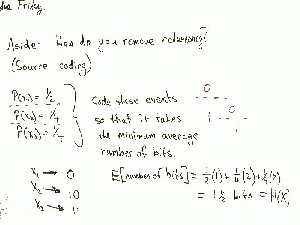 the Friday.
Aside: How do you remove redundancy?
(Source coding)
P(x₁) = 1/2
P(x₂) = 1/4
P(x₃) = 1/4
Code these events
so that it takes
the minimum average
number of bits.
0
0
1
1
x₁ → 0
x₂ → 10
x₃ → 11
E[number of bits] = 1/2(1) + 1/4(2) + 1/4(2)
= 1 1/2 bits = H(X)